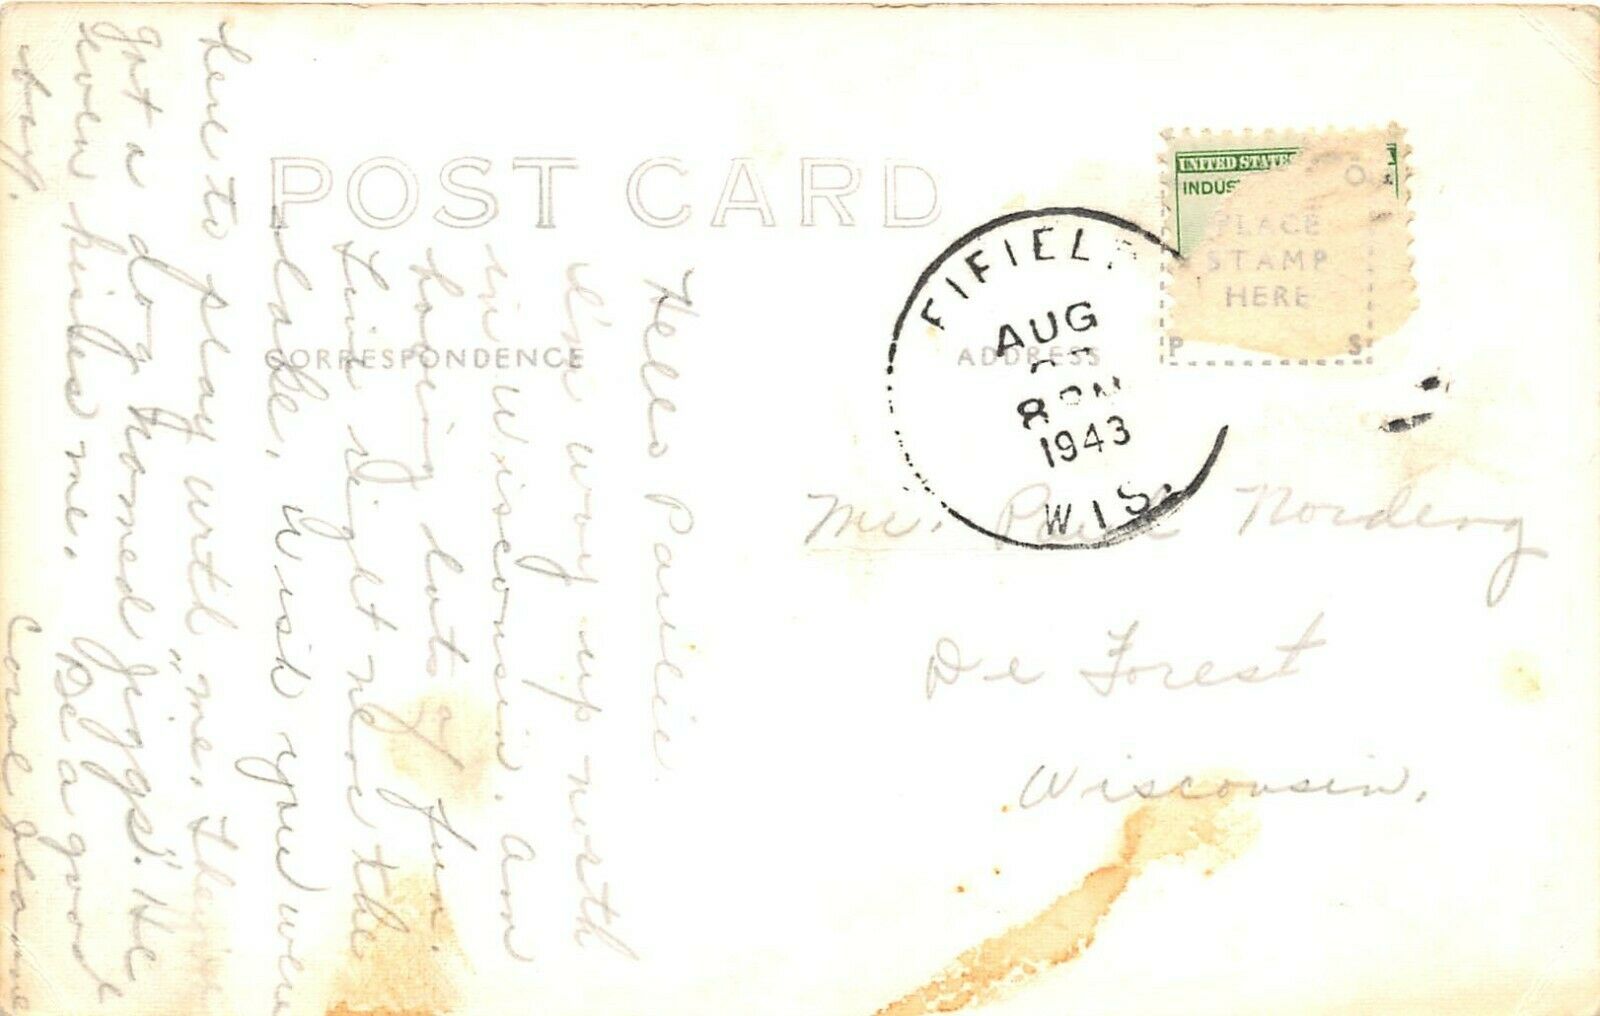 POST CARD
CORRESPONDENCE
ADDRESS
UNITED STATES
INDUS
PLACE
STAMP
HERE
P S
O
FIFIELD
AUG
8 PM
1943
WIS.
Mr. Paul Nordeng
De Forest
Wisconsin.
Hello Paulie
I'm way up north
in Wisconsin. Am
having lots of fun.
Live right near the
lake. Wish you were
here to play with me. They've
got a dog named "Jiggs". He
even kisses me. Be a good
boy.
Carol Jeanne